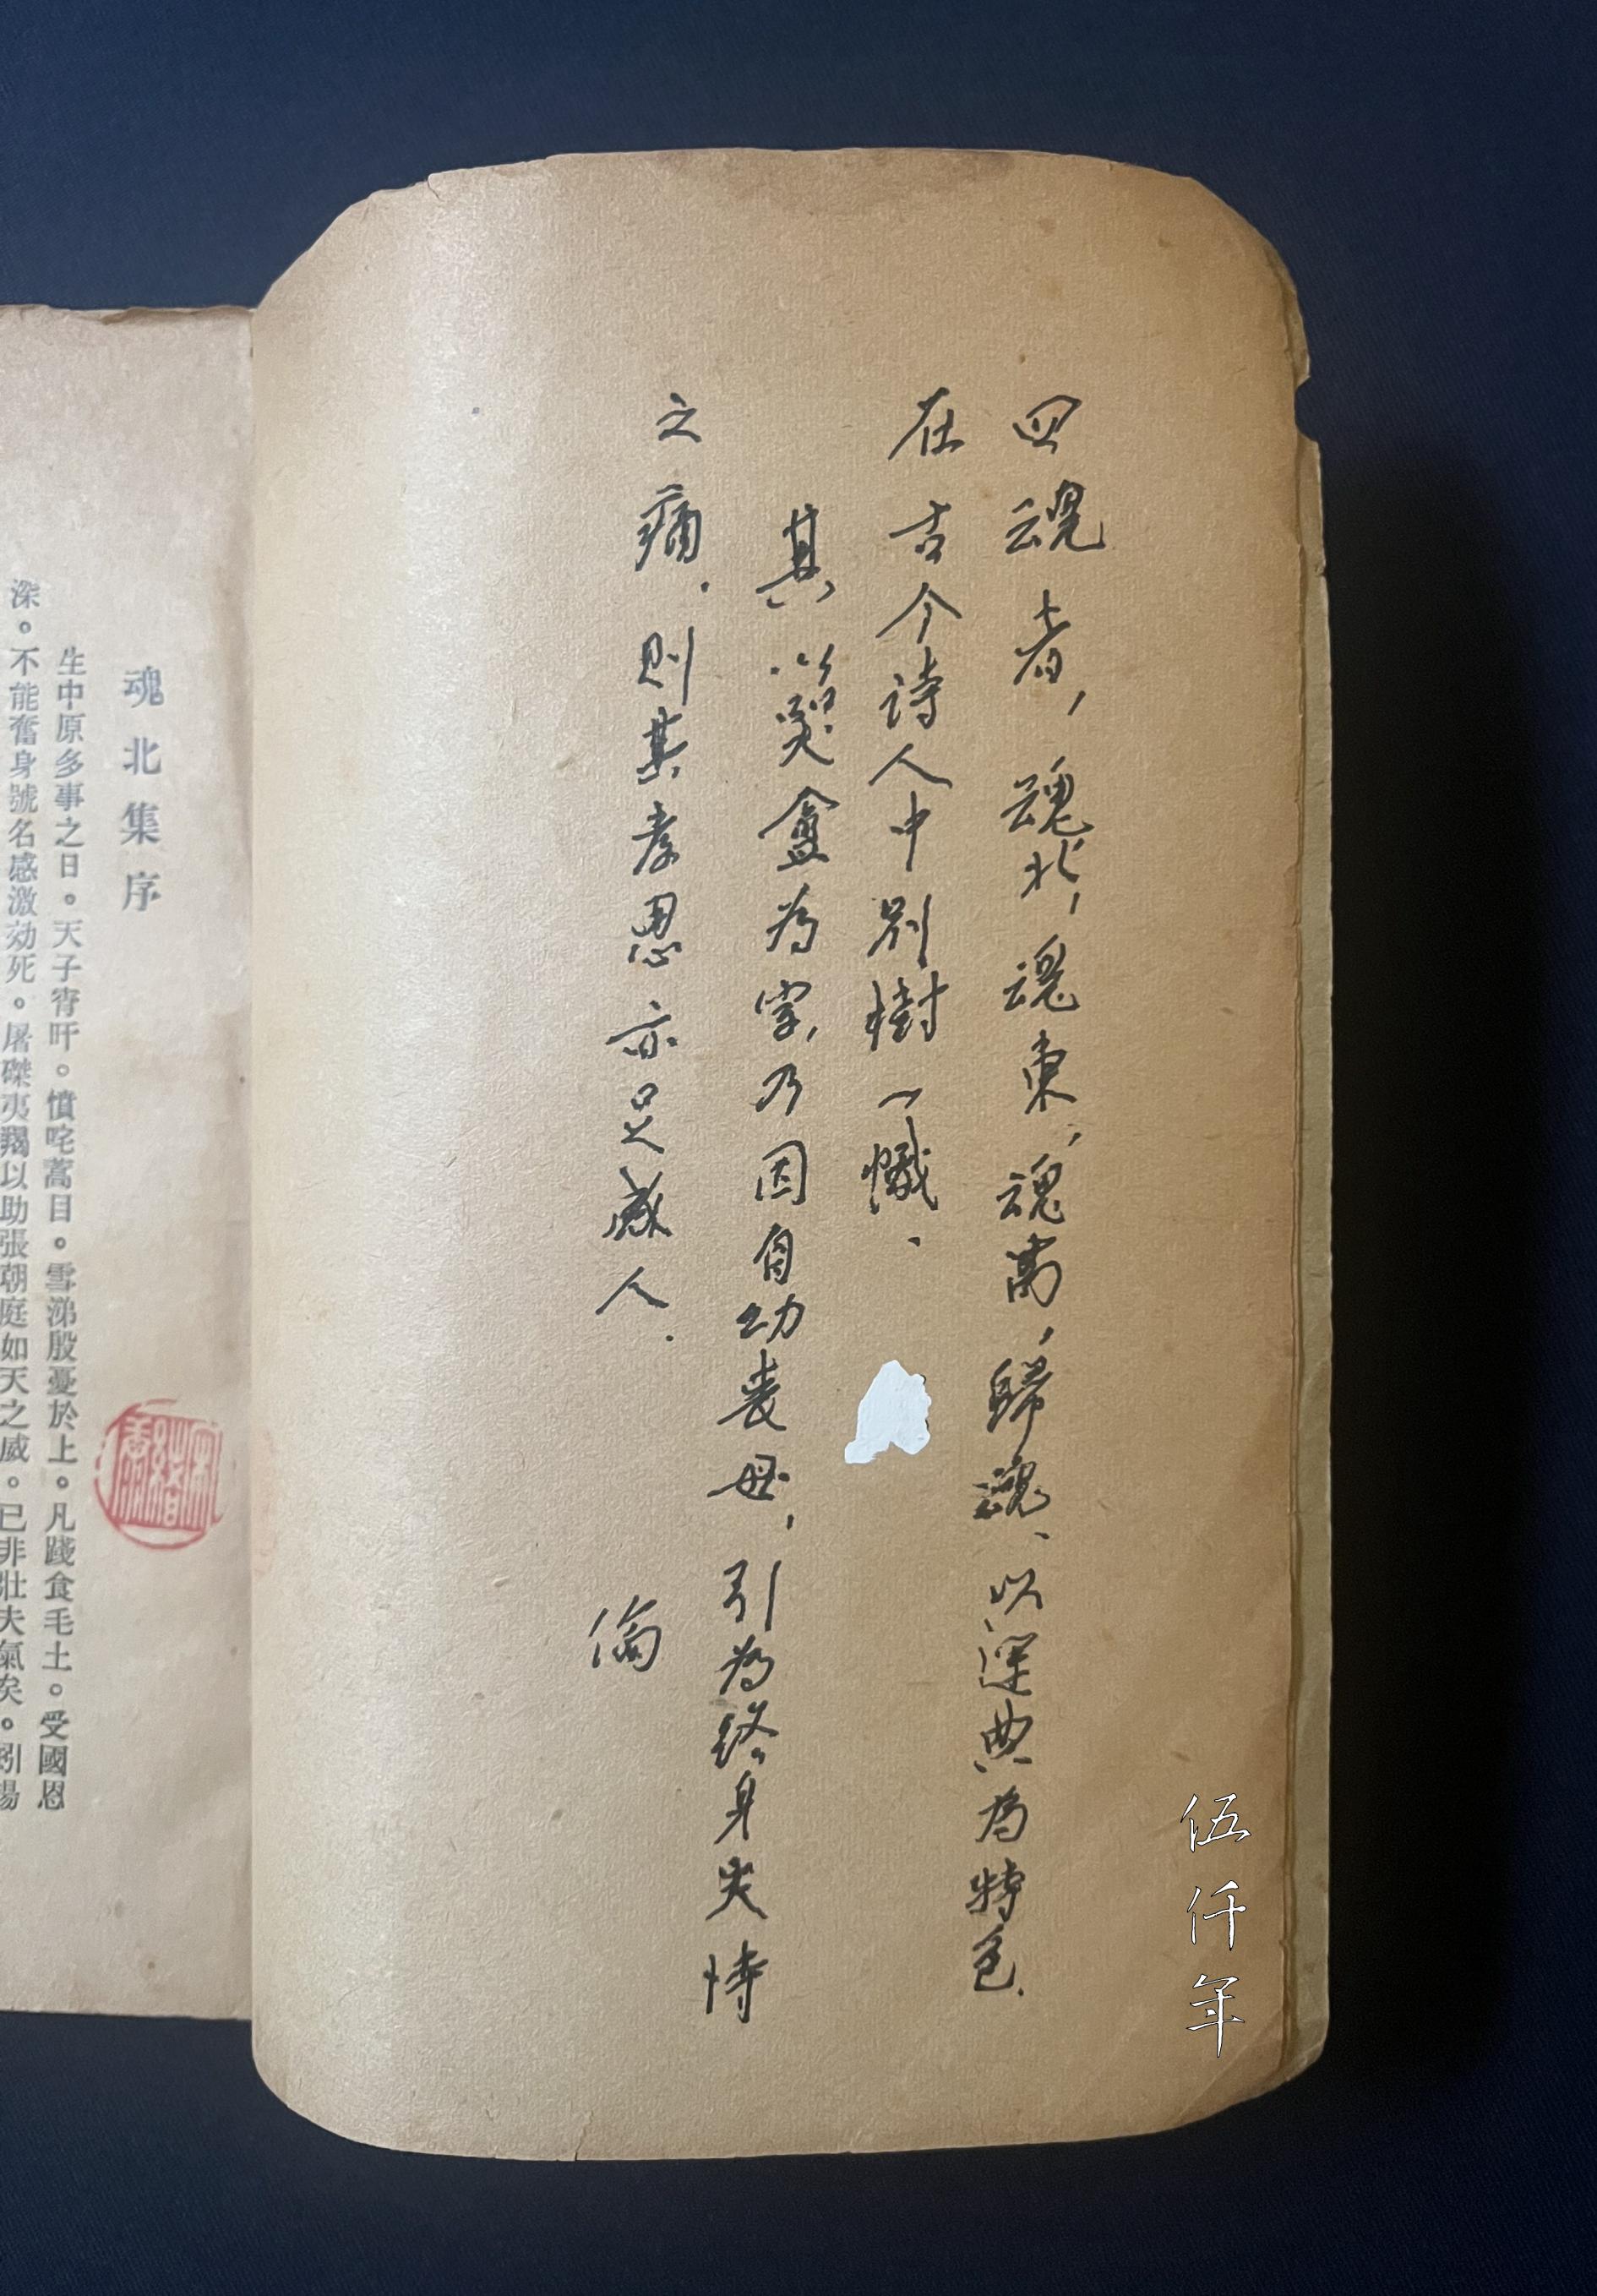 四魂者，魂北，魂東，魂南，歸魂、以運典為特色.
在古今詩人中別樹一幟、
其以哭盦為字，乃因自幼喪母，引為終身失恃
之痛．則其孝思亦足感人．
倫
伍仟年
魂北集序
生中原多事之日。天子宵旰。憤咤蒿目。雪涕殷憂於上。凡踐食毛土。受國恩
深。不能奮身號名感激効死。屠磔夷羯以助張朝庭如天之威。已非壯夫氣矣。